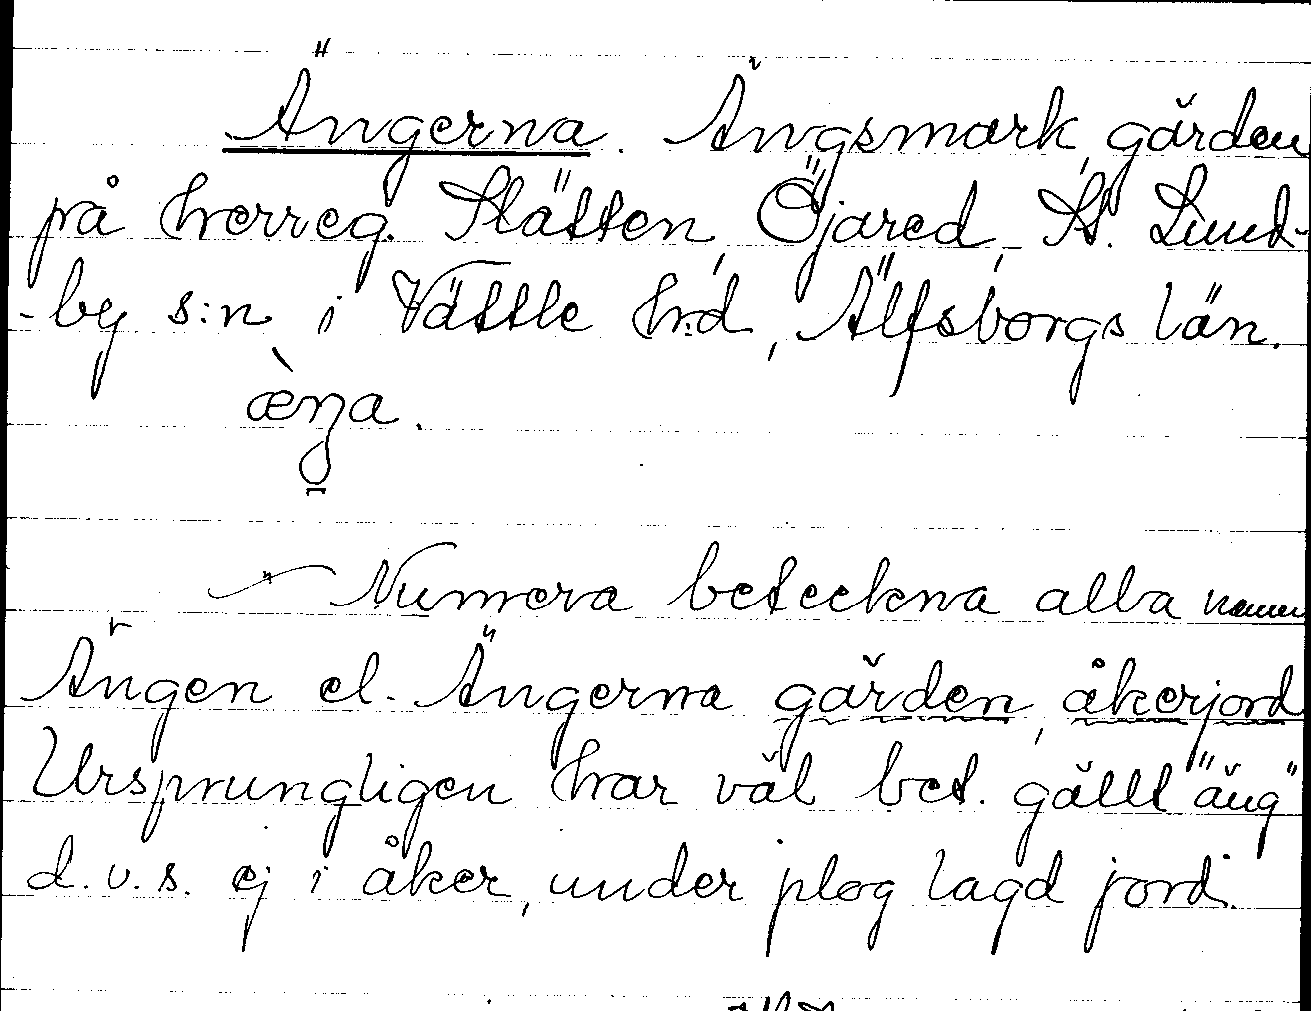 Ängerna. Ängsmark, gärden
på herreg. Slätten, Öjared, St. Lund-
-by s:n i Vättle hrd, Älfsborgs län.
æ̀ŋa.
Numera beteckna alla namn
Ängen el. Ängerna gärden, åkerjord
Ursprungligen har väl bet. gällt "äng"
d.v.s. ej i åker, under plog lagd jord.